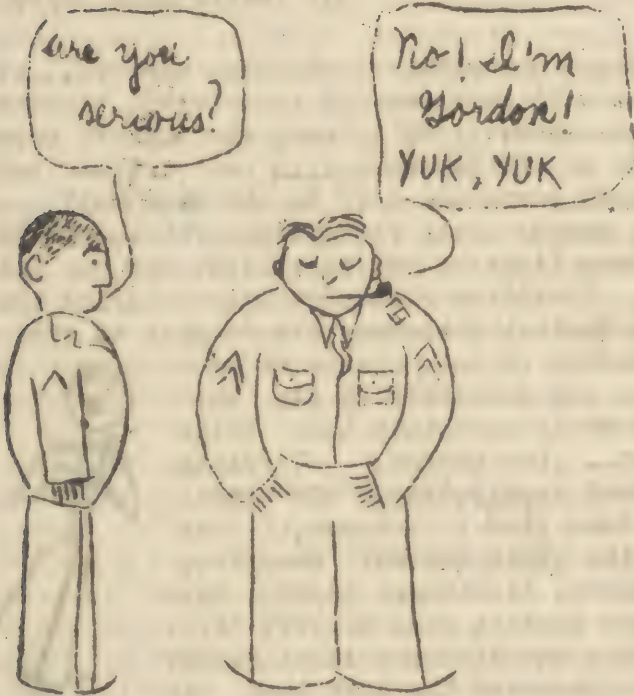 are you
serious?
No! I'm
Gordon!
YUK, YUK